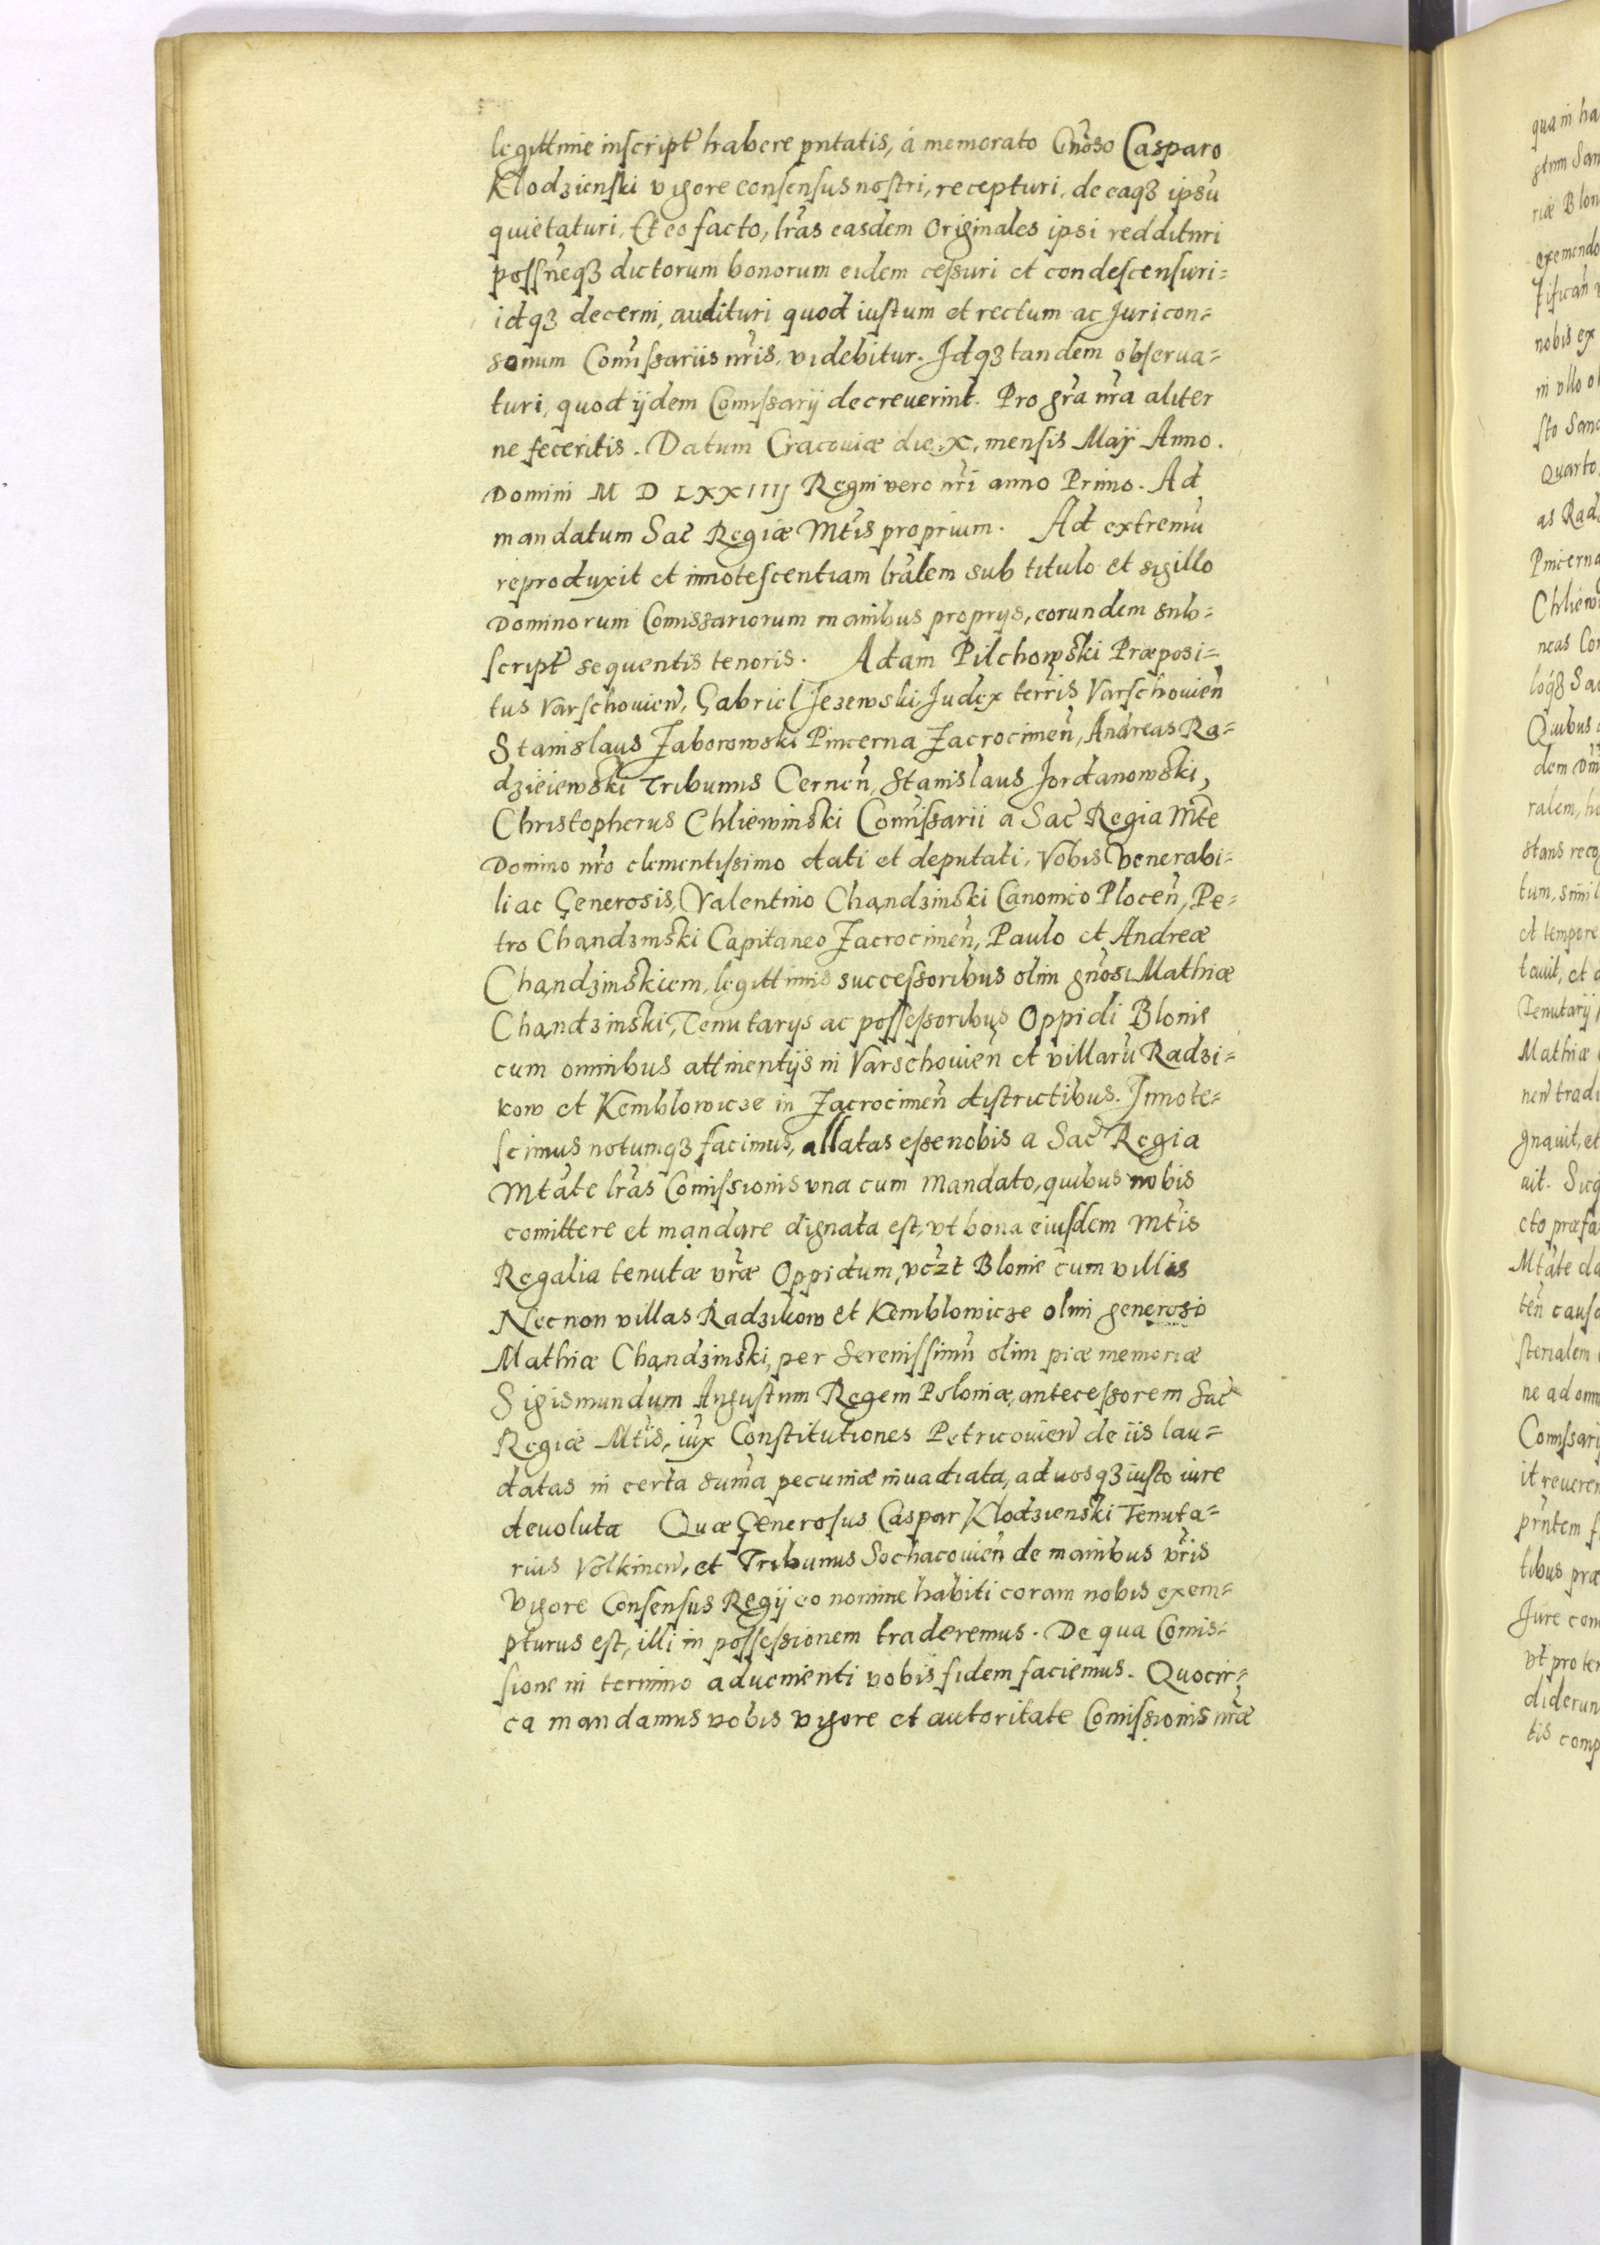 legittime inscript̃ habere p̃ntatis, á memorato Gñoso Casparo
Klodzienski vigore consensus nostri, recepturi, de eaqȝ ipsũ
quietaturi, Et eo facto, lr̃as easdem Originales ipsi reddituri
possñeqȝ dictorum bonorum eidem cessuri et condescensuri=
idqȝ decerni, audituri quod iustum et rectum ac Juri con=
sonum Com̃issariis nr̃is, videbitur. Idqȝ tandem observa=
turi, quod ijdem Com̃issarij decreuerint. Pro gr̃a nr̃a aliter
ne feceritis. Datum Cracouiæ die .X. mensis Maij Anno.
Domini M D LXXIIIJ Regni vero nr̃i anno Primo. Ad
mandatum Sac̃ Regiæ Mt̃is proprium. Ad extremũ
reproduxit et innotescentiam lr̃alem sub titulo et sigillo
Dominorum Com̃issariorum manibus proprijs, eorundem sub=
script̃ sequentis tenoris. Adam Pilchowski Præposi=
tus Varschouieñ, Gabriel Jezewski Judex terr̃is Varschouieñ
Stanislaus Zaborowski Pincerna Zacrocimeñ, Andreas Ra=
dzieiewski Tribunus Cerneñ, Stanislaus Jordanowski,
Christopherus Chliewinski Com̃issarii a Sac̃ Regia Mt̃e
Domino nr̃o clementissimo dati et deputati, Vobis Venerabi=
li ac Generosis, Valentino Chądzinski Canonico Ploceñ, Pe=
tro Chądzinski Capitaneo Zacrocimeñ, Paulo et Andreæ
Chądzinskiem, legittimis successoribus olim gñosi Mathiæ
Chądzinski, Tenutarijs ac possessoribus Oppidi Blonie
cum omnibus attinentijs in Varschouieñ et villarũ Radzi=
kow et Kemblowicze in Zacrocimeñ districtibus. Innote=
scimus notumqȝ facimus, allatas esse nobis a Sac̃ Regia
Mt̃ate lr̃as Com̃issionis una cum mandato, quibus nobis
comittere et mandare dignata est, vt bona eiusdem Mt̃is
Regalia tenutæ vr̃æ Oppidum, vc̃zt Blonie cum villis
Necnon villas Radzikow et Kemblowicze olim generosi
Mathiæ Chądzinski, per Serenissimũ olim piæ memoriæ
Sigismundum Augustum Regem Poloniæ, antecessorem Sac̃
Regiæ Mt̃is, iux̃ Constitutiones Petricouieñ de iis lau=
datas in certa sum̃a pecuniæ inuadiata, ad uos qȝ iusto iure
deuoluta Quæ Generosus Caspar Klodzienski Tenuta=
rius Volkineñ, et Tribunus Sochacouieñ de manibus vr̃is
Vigore Consensus Regij eo nomine habiti coram nobis exem=
pturus est, illi in possessionem traderemus. De qua Com̃is=
sione in termino aduenienti vobis fidem faciemus. Quocir=
ca mandamus vobis vigore et autoritate Com̃issionis nr̃æ